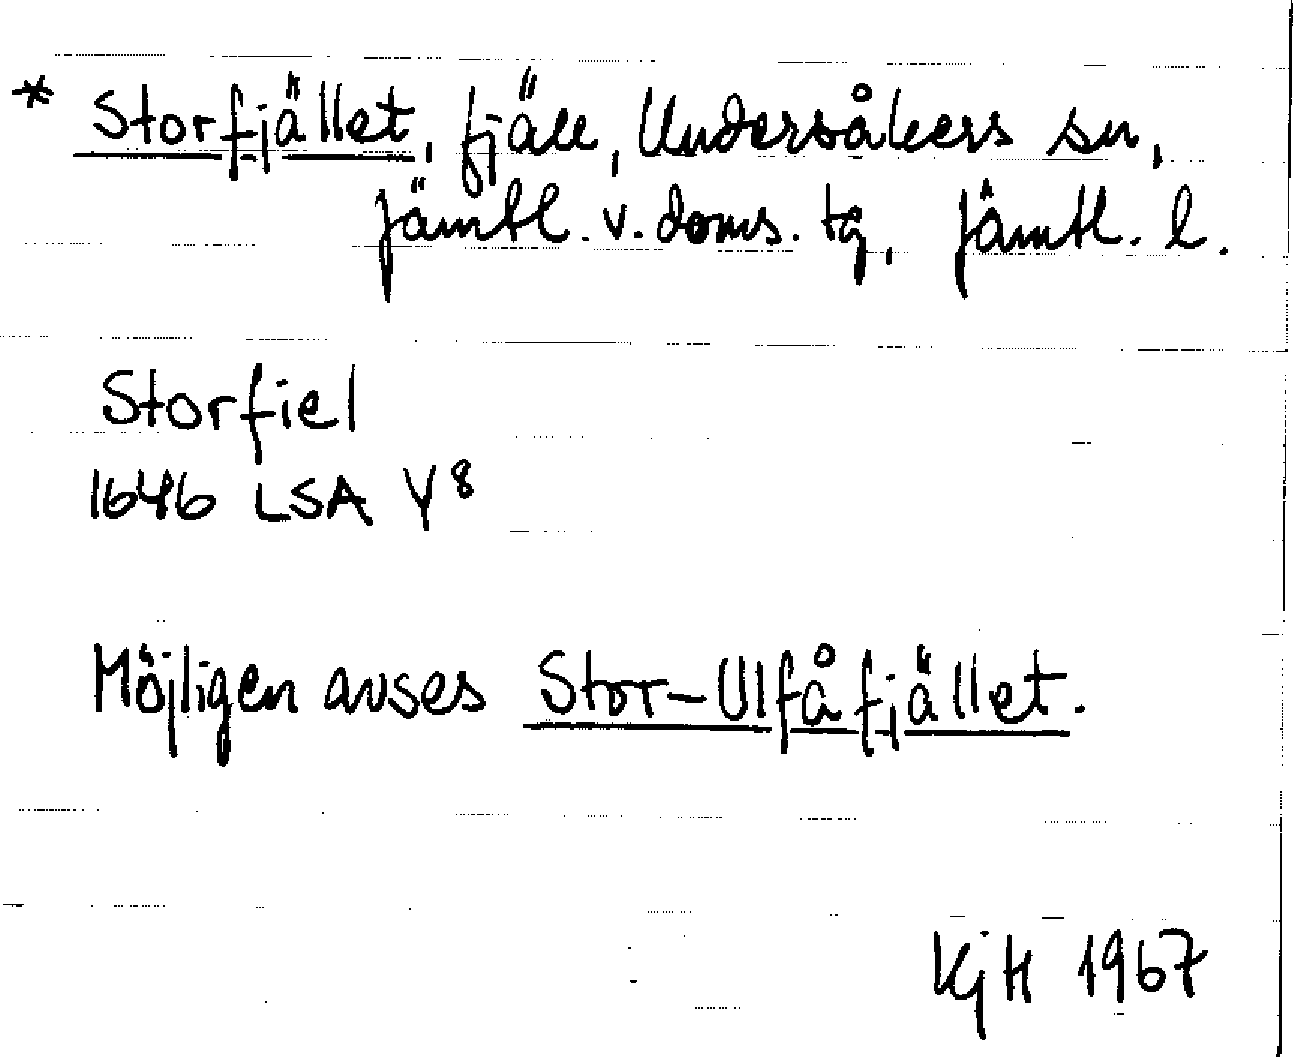 * Storfjället, fjäll, Undersåkers sn,
Jämtl. v. doms. tg, Jämtl. l.
Storfiel
1646 LSA Y8
Möjligen avses Stor-Ulfåfjället.
KjH 1967